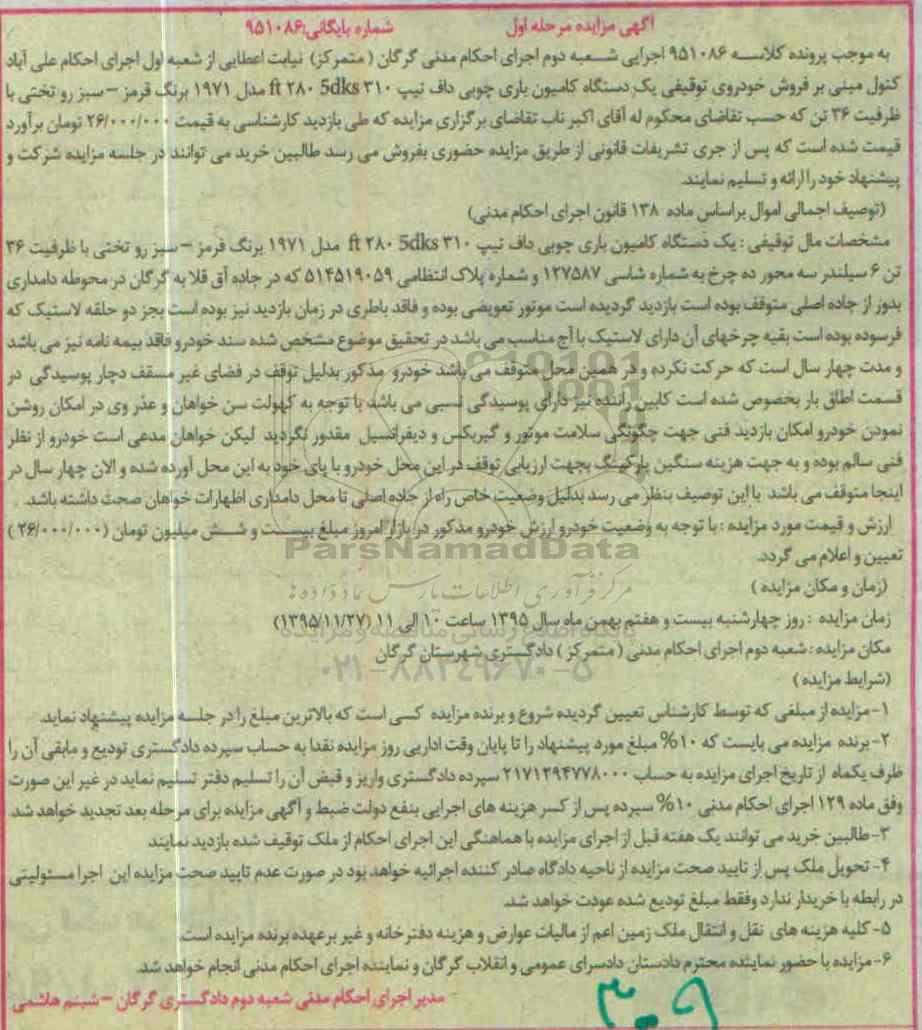 آگهی مزایده مرحله اول شماره بایگانی:۹۵۱۰۸۶
به موجب پرونده کلاسه ۹۵۱۰۸۶ اجرایی شعبه دوم اجرای احکام مدنی گرگان (متمرکز) نیابت اعطایی از شعبه اول اجرای احکام علی آباد
کتول مبنی بر فروش خودروی توقیفی یک دستگاه کامیون باری چوبی داف تیپ ۳۱۰ ft ۲۸۰ 5dks مدل ۱۹۷۱ برنگ قرمز – سبز رو تختی با
ظرفیت ۳۶ تن که حسب تقاضای محکوم له آقای اکبر ناب تقاضای برگزاری مزایده که طی بازدید کارشناسی به قیمت ۲۶/۰۰۰/۰۰۰ تومان برآورد
قیمت شده است که پس از جری تشریفات قانونی از طریق مزایده حضوری بفروش می رسد طالبین خرید می توانند در جلسه مزایده شرکت و
پیشنهاد خود را ارائه و تسلیم نمایند.
(توصیف اجمالی اموال براساس ماده ۱۳۸ قانون اجرای احکام مدنی)
مشخصات مال توقیفی : یک دستگاه کامیون باری چوبی داف تیپ ۳۱۰ ft ۲۸۰ 5dks مدل ۱۹۷۱ برنگ قرمز – سبز رو تختی با ظرفیت ۳۶
تن ۶ سیلندر سه محور ده چرخ به شماره شاسی ۱۲۷۵۸۷ و شماره پلاک انتظامی ۵۱۴۵۱۹۰۵۹ که در جاده آق قلا به گرگان در محوطه دامداری
بدور از جاده اصلی متوقف بوده است بازدید گردیده است موتور تعویضی بوده و فاقد باطری در زمان بازدید نیز بوده است بجز دو حلقه لاستیک که
فرسوده بوده است بقیه چرخهای آن دارای لاستیک با آج مناسب می باشد در تحقیق موضوع مشخص شده سند خودرو فاقد بیمه نامه نیز می باشد
و مدت چهار سال است که حرکت نکرده و در همین محل متوقف می باشد خودرو مذکور بدلیل توقف در فضای غیر مسقف دچار پوسیدگی در
قسمت اطاق بار بخصوص شده است کابین راننده نیز دارای پوسیدگی نسبی می باشد با توجه به کهولت سن خواهان و عذر وی در امکان روشن
نمودن خودرو امکان بازدید فنی جهت چگونگی سلامت موتور و گیربکس و دیفرانسیل مقدور نگردید لیکن خواهان مدعی است خودرو از نظر
فنی سالم بوده و به جهت هزینه سنگین پارکینگ بجهت ارزیابی توقف در این محل خودرو با پای خود به این محل آورده شده و الان چهار سال در
اینجا متوقف می باشد با این توصیف بنظر می رسد بدلیل وضعیت خاص راه از جاده اصلی تا محل دامداری اظهارات خواهان صحت داشته باشد.
ارزش و قیمت مورد مزایده : با توجه به وضعیت خودرو ارزش خودرو مذکور در بازار امروز مبلغ بیست و شش میلیون تومان (۲۶/۰۰۰/۰۰۰)
تعیین و اعلام می گردد.
(زمان و مکان مزایده)
زمان مزایده : روز چهارشنبه بیست و هفتم بهمن ماه سال ۱۳۹۵ ساعت ۱۰ الی ۱۱ (۱۳۹۵/۱۱/۲۷)
مکان مزایده : شعبه دوم اجرای احکام مدنی (متمرکز) دادگستری شهرستان گرگان
(شرایط مزایده)
۱- مزایده از مبلغی که توسط کارشناس تعیین گردیده شروع و برنده مزایده کسی است که بالاترین مبلغ را در جلسه مزایده پیشنهاد نماید.
۲- برنده مزایده می بایست که ۱۰% مبلغ مورد پیشنهاد را تا پایان وقت اداریی روز مزایده نقدا به حساب سپرده دادگستری تودیع و مابقی آن را
ظرف یکماه از تاریخ اجرای مزایده به حساب ۲۱۷۱۲۹۴۷۷۸۰۰۰ سپرده دادگستری واریز و قبض آن را تسلیم دفتر تسلیم نماید در غیر این صورت
وفق ماده ۱۲۹ اجرای احکام مدنی ۱۰% سپرده پس از کسر هزینه های اجرایی بنفع دولت ضبط و آگهی مزایده برای مرحله بعد تجدید خواهد شد.
۳- طالبین خرید می توانند یک هفته قبل از اجرای مزایده با هماهنگی این اجرای احکام از ملک توقیف شده بازدید نمایند
۴- تحویل ملک پس از تایید صحت مزایده از ناحیه دادگاه صادر کننده اجرائیه خواهد بود در صورت عدم تایید صحت مزایده این اجرا مسئولیتی
در رابطه با خریدار ندارد وفقط مبلغ تودیع شده عودت خواهد شد.
۵- کلیه هزینه های نقل و انتقال ملک زمین اعم از مالیات عوارض و هزینه دفترخانه و غیر برعهده برنده مزایده است.
۶- مزایده با حضور نماینده محترم دادستان دادسرای عمومی و انقلاب گرگان و نماینده اجرای احکام مدنی انجام خواهد شد.
مدیر اجرای احکام مدنی شعبه دوم دادگستری گرگان – شبنم هاشمی
ParsNamadData
مرکز فرآوری اطلاعات پارس نماد داده ها
پایگاه اطلاع رسانی مناقصه و مزایده
۰۲۱-۸۸۳۴۹۶۷۰-۵